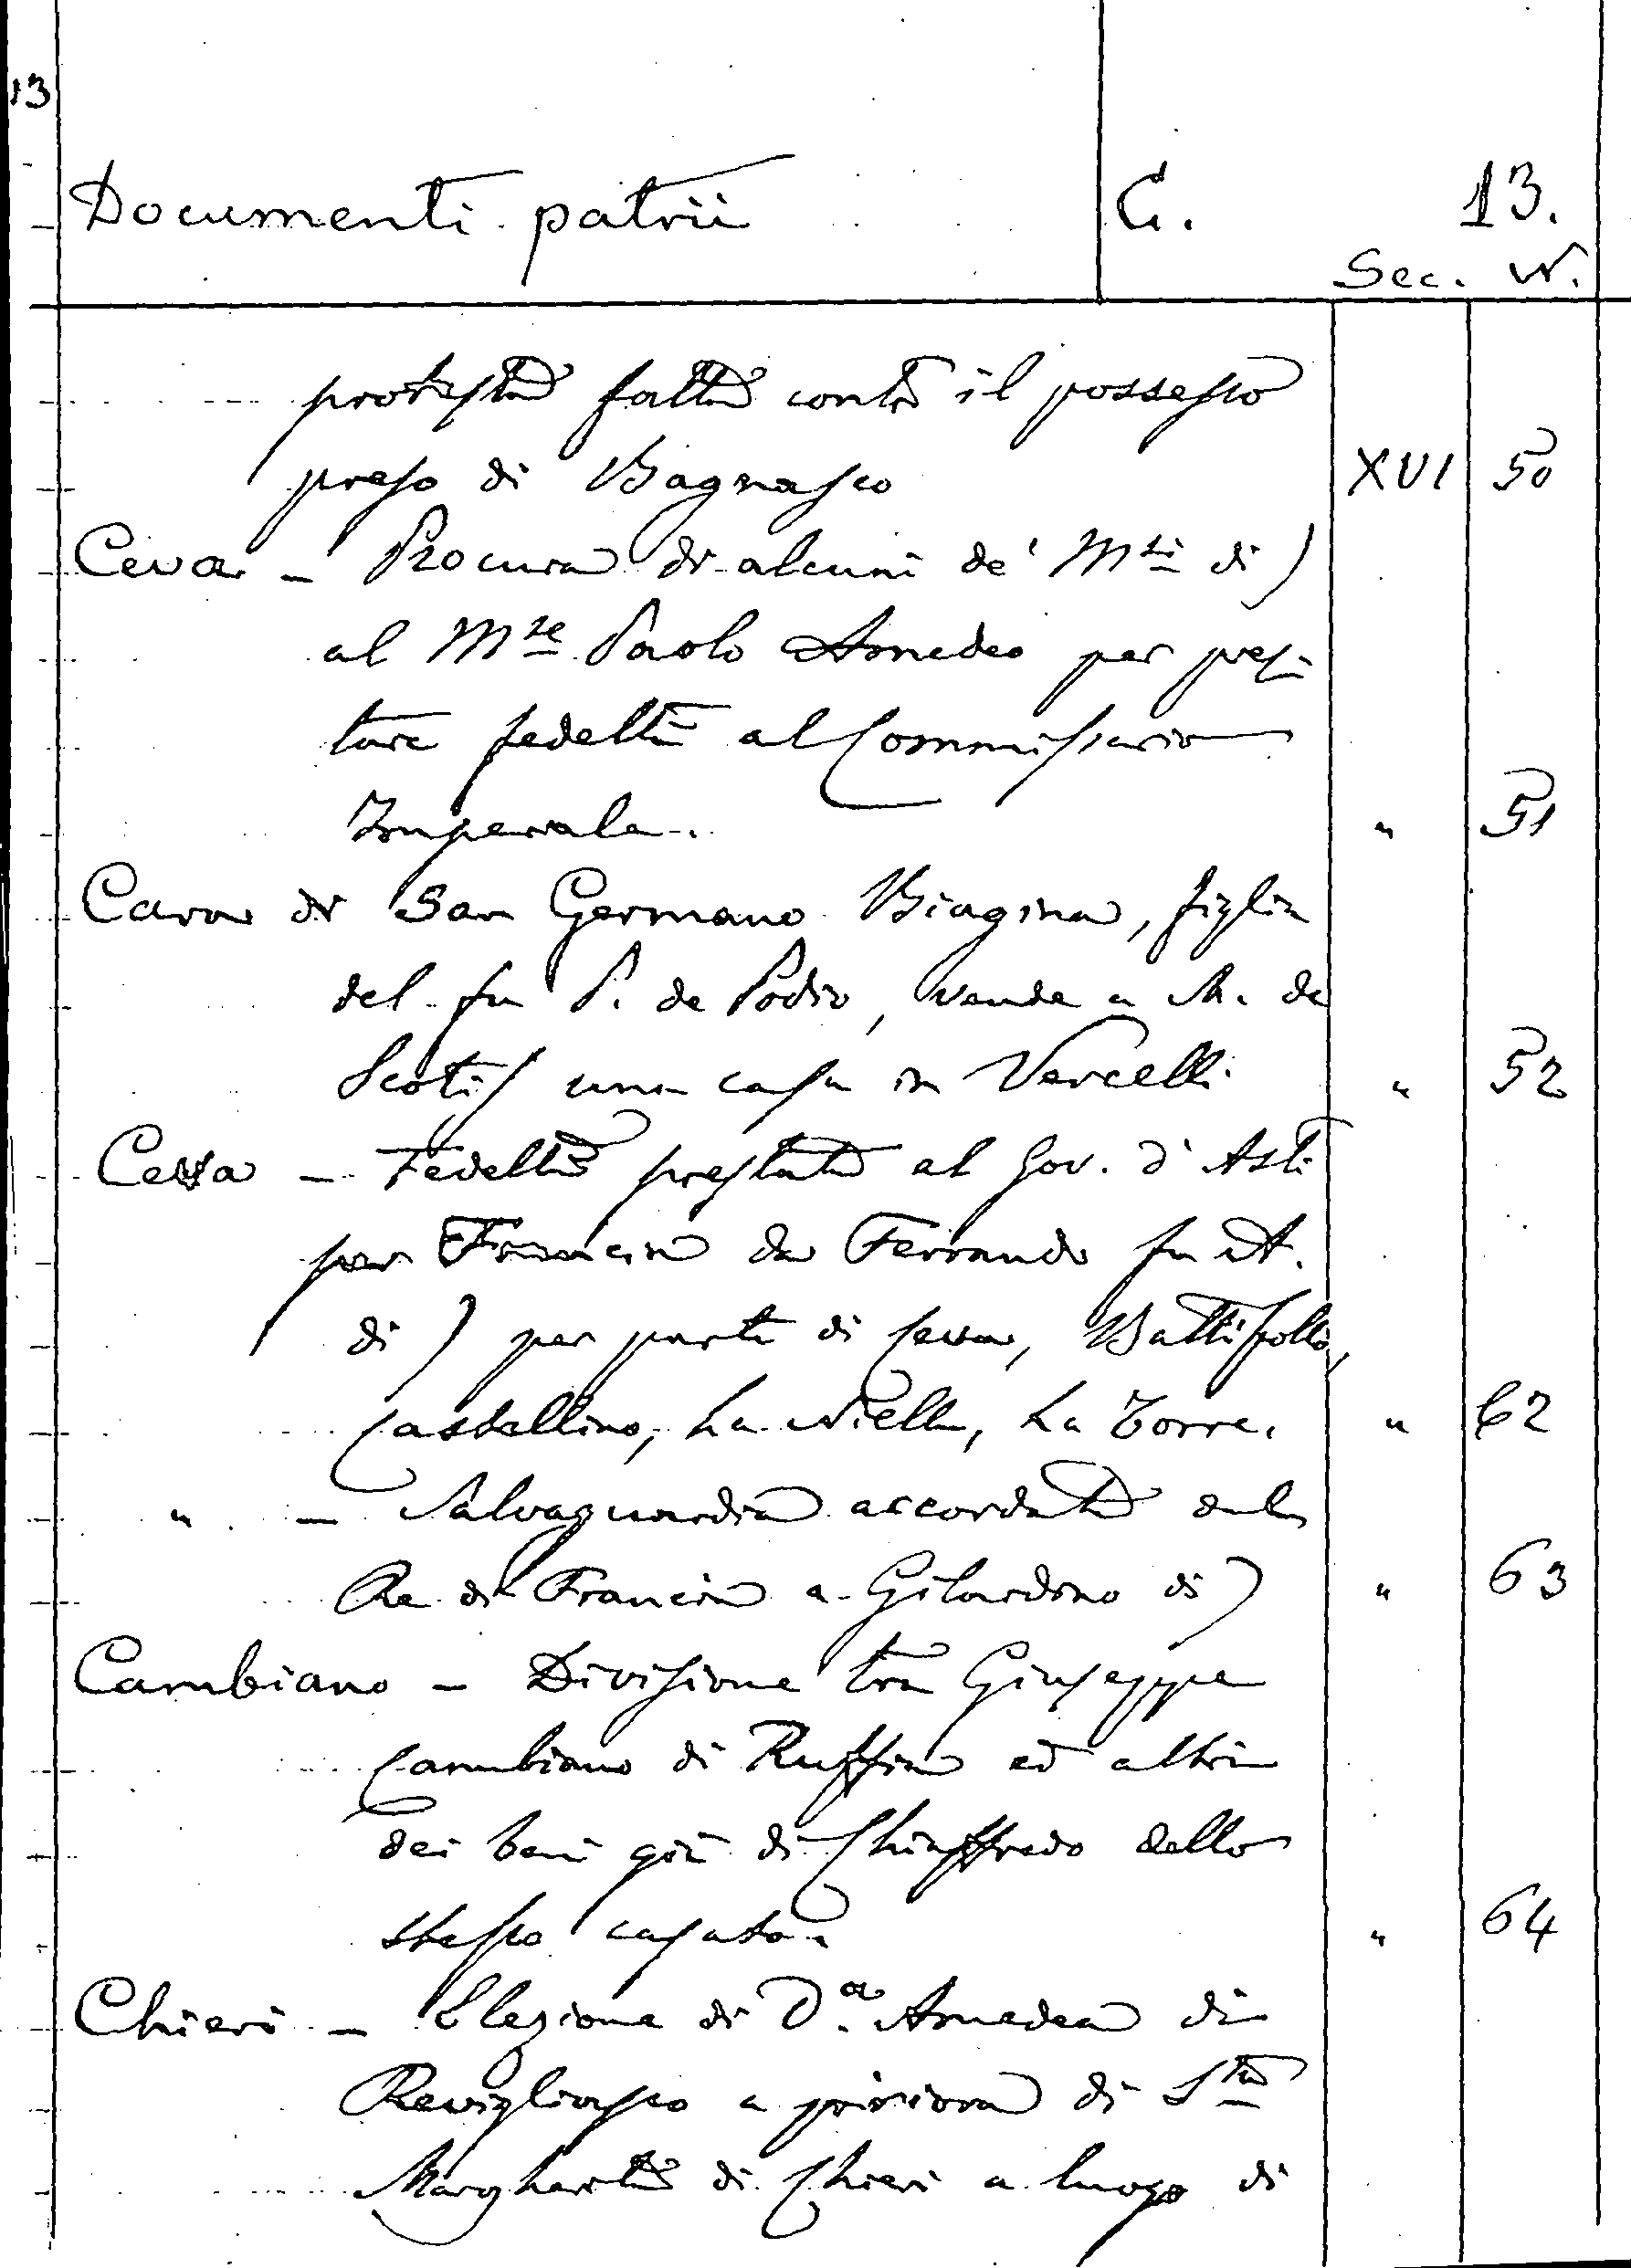 13
Documenti patrii C. 13.
Sec. N.
protesta fatta contro il possesso
preso di Bagnasco XVI 50
Ceva - Procura di alcuni de' Msi di)
al Mse Paolo Amedeo per pres-
tare fedeltà al Commissario
Imperiale. " 51
Cara di San Germano Biagina, figlia
del fu P. de Podio, vende a M. de
Scotis una casa in Vercelli " 52
Ceva - Fedeltà prestata al Gov. d'Asti
per Francia da Ferrando fu A.
di) per parte di Ceva, Battifollo,
Castellino, La Niella, La Torre. " 62
" - Salvaguardia accordata dal
Re di Francia a Gilardino di) " 63
Cambiano - Divisione tra Giuseppe
Cambiano di Ruffia ed altri
dei beni già di Chiaffredo dello
stesso casato. " 64
Chieri - Elezione di D.a Amedea di
Revigliasco a priora di Sta
Margharita di Chieri a luogo di